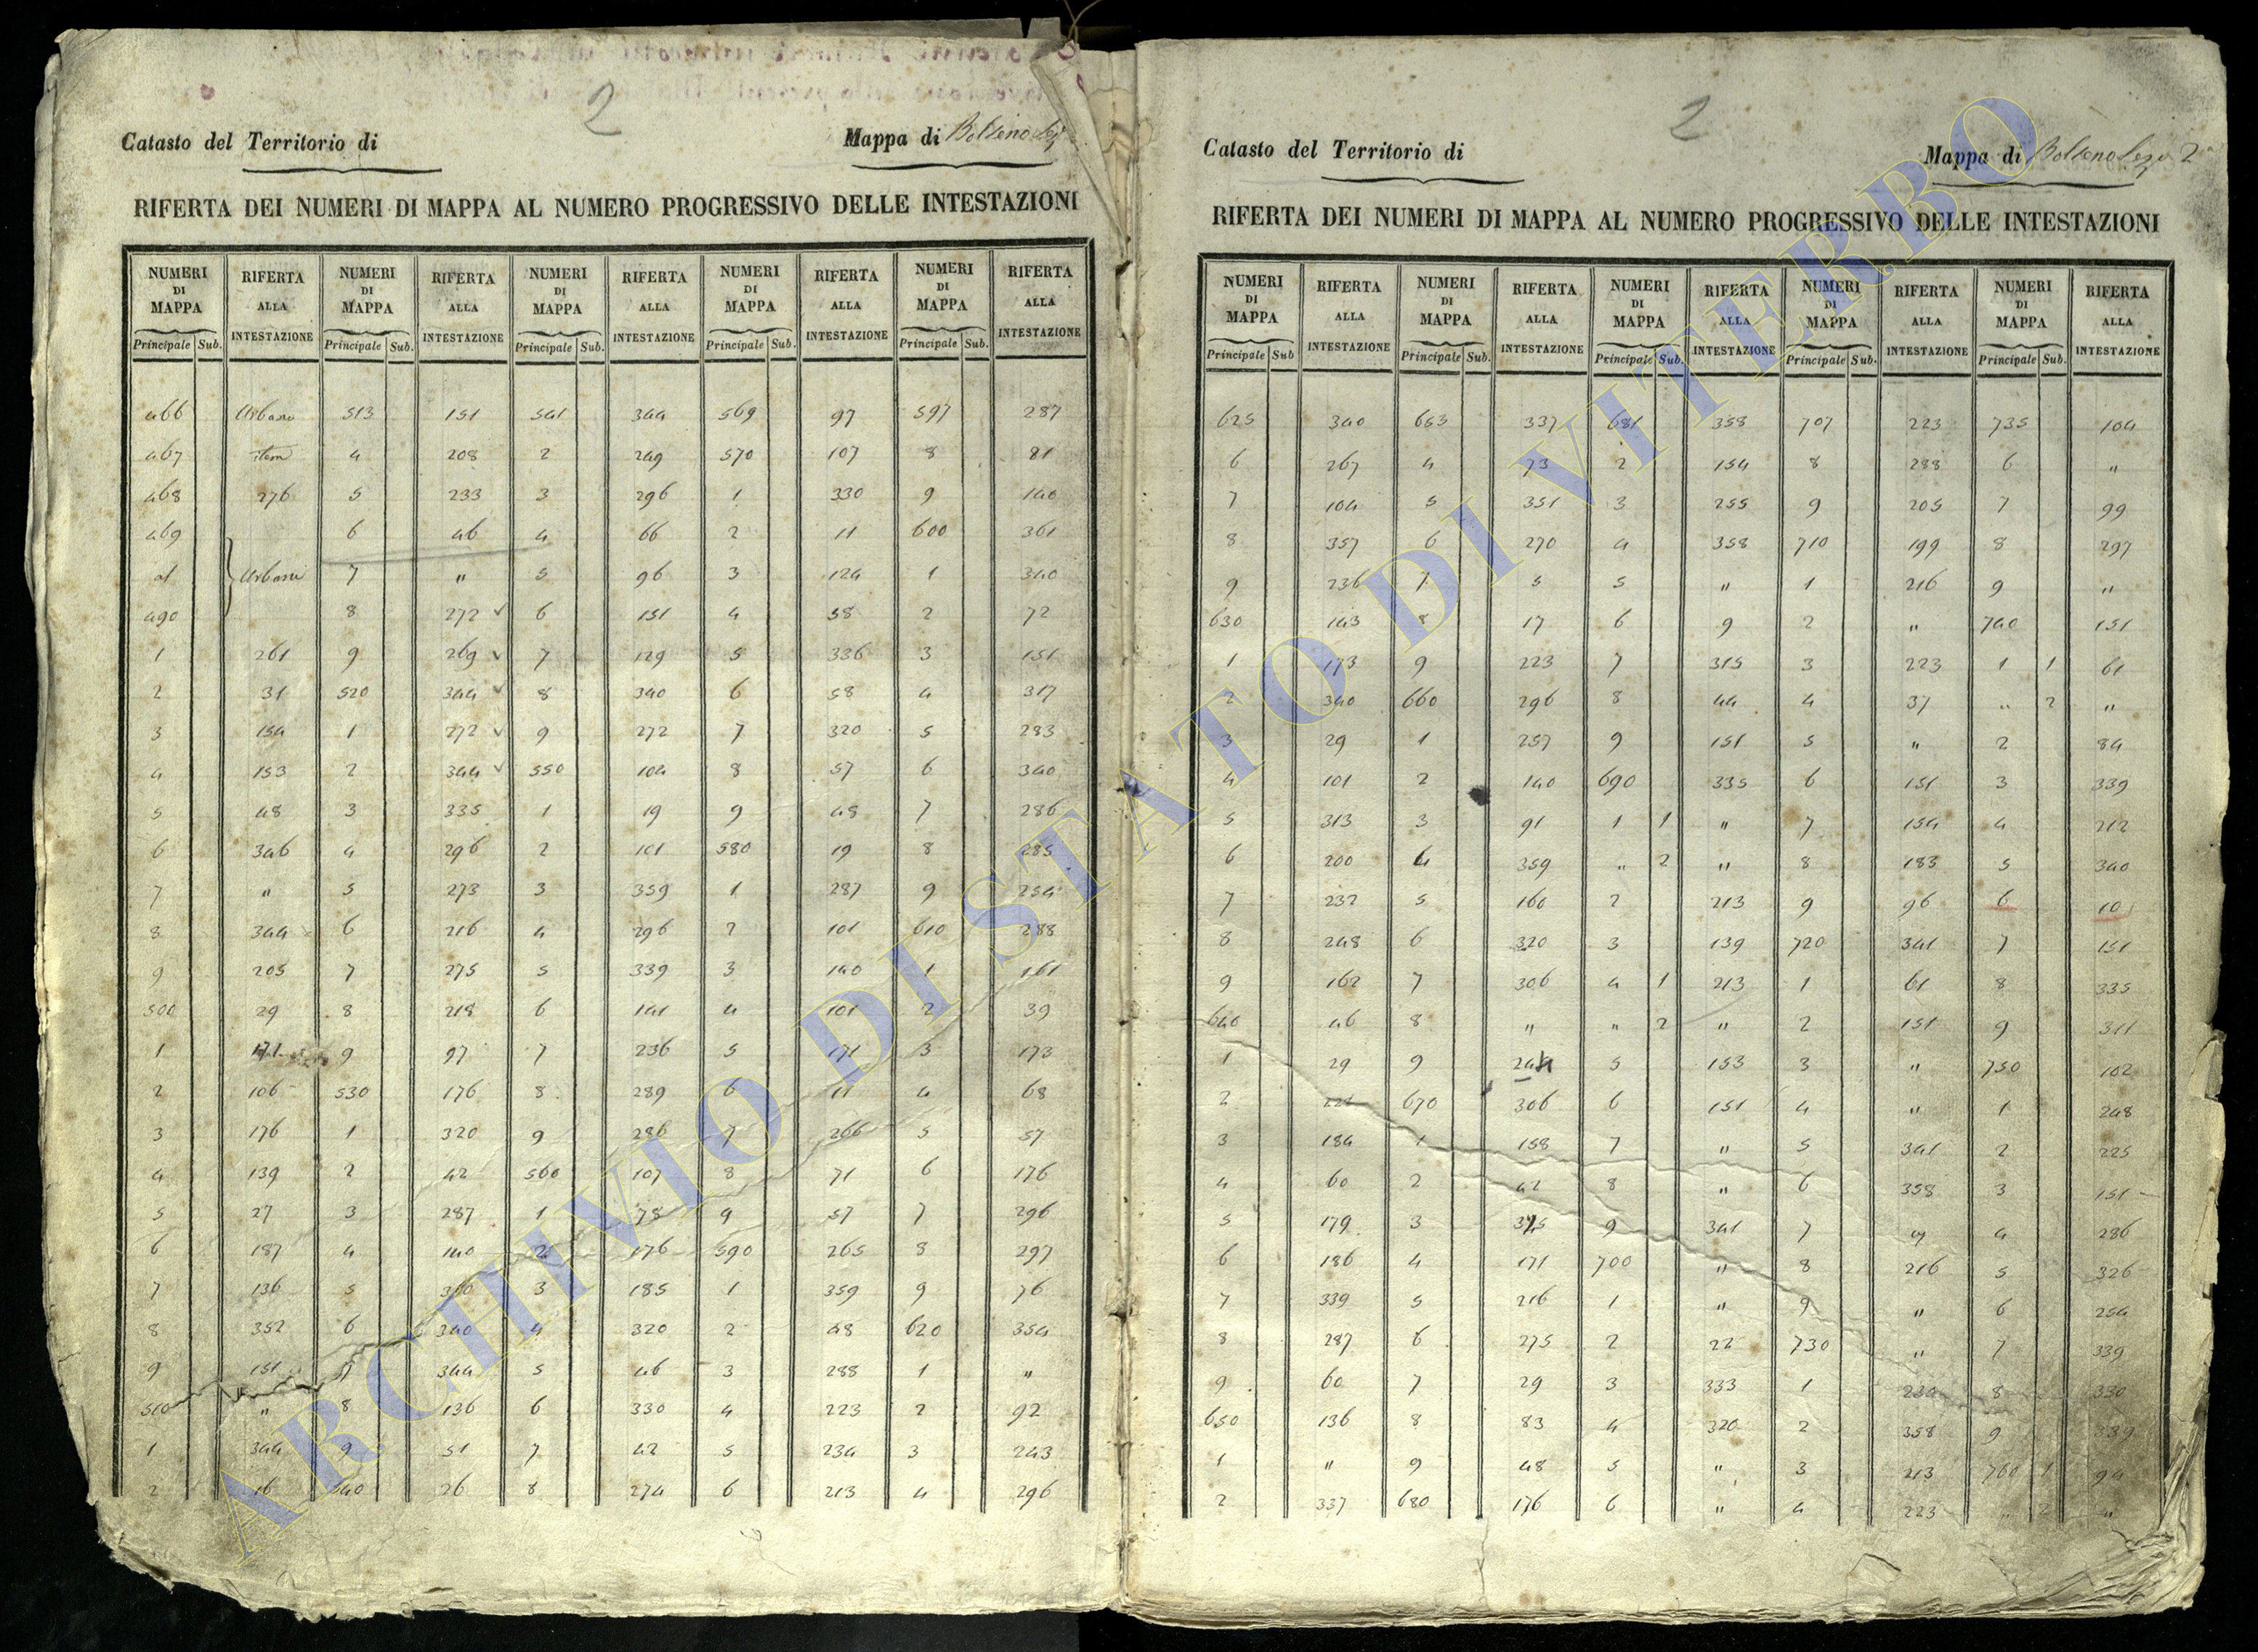 2
Catasto del Territorio di
Mappa di Bolseno
RIFERTA DEI NUMERI DI MAPPA AL NUMERO PROGRESSIVO DELLE INTESTAZIONI
NUMERI DI MAPPA RIFERTA ALLA INTESTAZIONE NUMERI DI MAPPA RIFERTA ALLA INTESTAZIONE NUMERI DI MAPPA RIFERTA ALLA INTESTAZIONE NUMERI DI MAPPA RIFERTA ALLA INTESTAZIONE NUMERI DI MAPPA RIFERTA ALLA INTESTAZIONE
Principale Sub. Principale Sub. Principale Sub. Principale Sub. Principale Sub.
466 Urbano 513 151 541 344 569 97 597 287
467 item 4 208 2 249 570 107 8 81
468 276 5 233 3 296 1 330 9 140
469 6 46 4 66 2 11 600 361
al Urbani 7 " 5 96 3 124 1 340
490 8 272 6 151 4 58 2 72
1 261 9 269 7 129 5 336 3 151
2 31 520 344 8 340 6 58 4 317
3 154 1 272 9 272 7 320 5 283
4 153 2 344 550 104 8 57 6 340
5 48 3 335 1 19 9 48 7 286
6 346 4 296 2 101 580 19 8 285
7 " 5 273 3 359 1 287 9 254
8 344 6 216 4 296 2 101 610 288
9 205 7 275 5 339 3 140 1 161
500 29 8 218 6 141 4 101 2 39
1 171 9 97 7 236 5 171 3 173
2 106 530 176 8 289 6 11 4 68
3 176 1 320 9 286 7 266 5 57
4 139 2 42 560 107 8 71 6 176
5 27 3 287 1 78 9 57 7 296
6 187 4 140 2 176 590 265 8 297
7 136 5 3 185 1 359 9 76
8 352 6 340 4 320 2 48 620 354
9 151 7 344 5 46 3 288 1 "
510 " 8 136 6 330 4 223 2 92
1 344 9 51 7 42 5 234 3 243
2 16 540 26 8 274 6 213 4 296
2
Catasto del Territorio di
Mappa di Bolseno 2
RIFERTA DEI NUMERI DI MAPPA AL NUMERO PROGRESSIVO DELLE INTESTAZIONI
NUMERI DI MAPPA RIFERTA ALLA INTESTAZIONE NUMERI DI MAPPA RIFERTA ALLA INTESTAZIONE NUMERI DI MAPPA RIFERTA ALLA INTESTAZIONE NUMERI DI MAPPA RIFERTA ALLA INTESTAZIONE NUMERI DI MAPPA RIFERTA ALLA INTESTAZIONE
Principale Sub Principale Sub. Principale Sub. Principale Sub. Principale Sub.
625 340 653 337 681 358 707 223 735 104
6 267 4 73 2 154 8 288 6 "
7 104 5 351 3 255 9 205 7 99
8 357 6 270 4 358 710 199 8 297
9 236 7 5 5 " 1 216 9 "
630 143 8 17 6 9 2 " 740 151
1 173 9 223 7 315 3 223 1 1 61
2 340 660 296 8 44 4 37 " 2 "
3 29 1 257 9 151 5 " 2 84
4 101 2 140 690 335 6 151 3 339
5 313 3 91 1 1 " 7 154 4 212
6 200 4 359 " 2 " 8 183 5 340
7 232 5 160 2 213 9 96 6 10
8 248 6 320 3 139 720 341 7 151
9 162 7 306 4 1 213 1 61 8 335
640 46 8 " " 2 " 2 151 9 311
1 29 9 244 5 153 3 " 750 102
2 670 306 6 151 4 " 1 248
3 184 1 158 7 " 5 341 2 225
4 60 2 42 8 " 6 358 3 151
5 179 3 9 341 7 4 286
6 186 4 171 700 " 8 216 5 326
7 339 5 216 1 " 9 " 6 254
8 287 6 275 2 22 730 " 7 339
9 60 7 29 3 333 1 8 330
650 136 8 83 4 320 2 358 9 339
1 " 9 48 5 " 3 213 760 1 94
2 337 680 176 6 " 4 223 " 2 "
ARCHIVIO DI STATO DI VITERBO